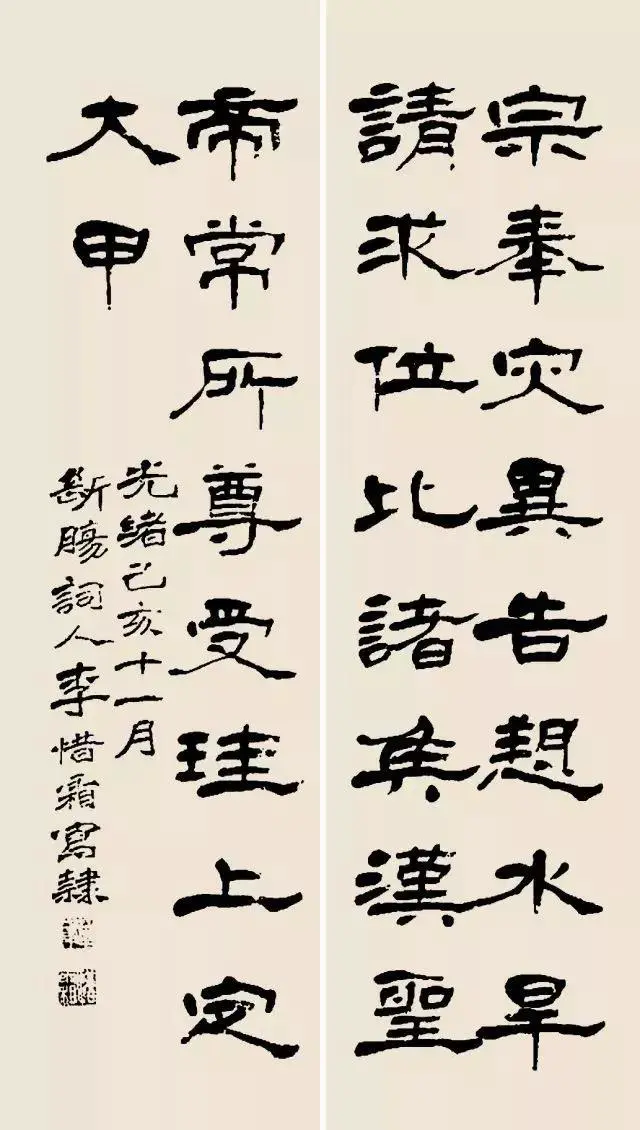 宗奉灾異告愬水旱
請求位比諸矦漢聖
帝常所尊受珪上定
大甲
光緒己亥十一月
断腸詞人李惜霜寫隸